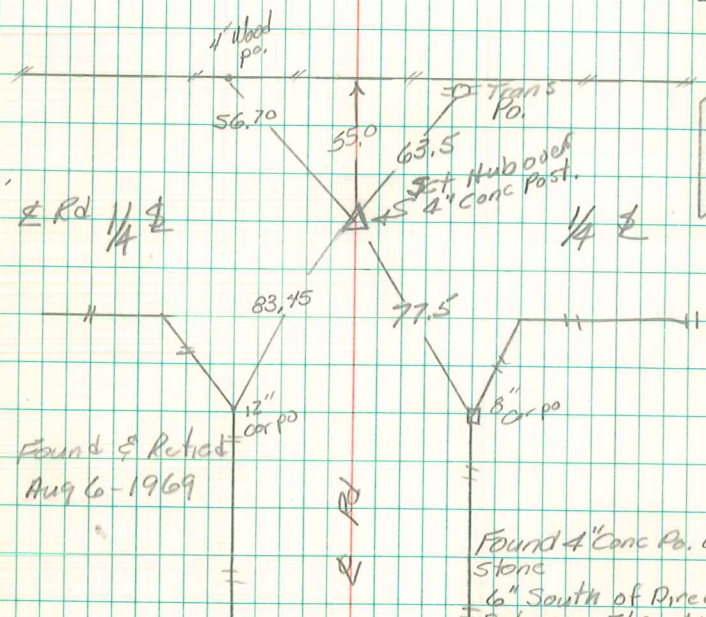 4" Wood
po.
Trans
Po.
56.70
55.0
63.5
Set Hub over
4" Conc Post.
℄ Rd 1/4 ℄
1/4 ℄
83.45
77.5
12"
cor po
8"
cor po
Found & Retied
Aug 6-1969
℄ Rd
Found 4" Conc Po.
stone
6" South of